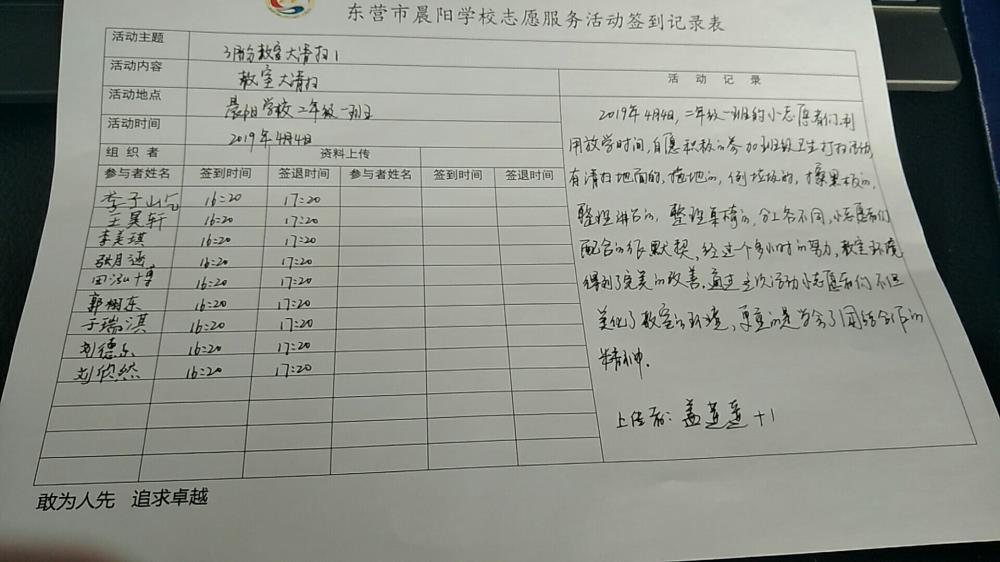 东营市晨阳学校志愿服务活动签到记录表
活动主题 3月份教室大清扫1
活动内容 教室大清扫
活动地点 晨阳学校二年级一班
活动时间 2019年4月4日
组织者 资料上传
参与者姓名 签到时间 签退时间 参与者姓名 签到时间 签退时间
李子山 16:20 17:20
王昊轩 16:20 17:20
李美琪 16:20 17:20
张月涵 16:20 17:20
田泓博 16:20 17:20
郭栩东 16:20 17:20
于瑞淇 16:20 17:20
刘德东 16:20 17:20
刘欣然 16:20 17:20
活动记录
2019年4月4日,二年级一班的小志愿者们利
用放学时间,自愿积极的参加班级卫生打扫活动,
有清扫地面的,拖地的,倒垃圾的,擦黑板的,
整理讲台的,整理桌椅的,分工各不同,小志愿者们
配合的很默契,经过一个多小时的努力,教室环境
得到了完美的改善,通过这次活动小志愿者们不但
美化了教室的环境,更重的是学会了团结合作的
精神.
上传者: 盖 +1
敢为人先 追求卓越